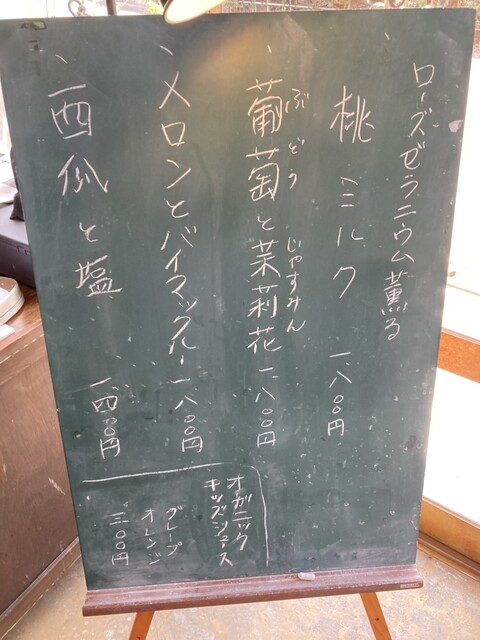 ローズゼラニウム薫る
桃ミルク 一八〇〇円
葡萄と茉莉花 一八〇〇円
ぶどう じゃすみん
メロンとバイマックルー 一八〇〇円
西瓜と塩 一四〇〇円
オーガニック
キッズジュース
グレープ
オレンジ
三〇〇円